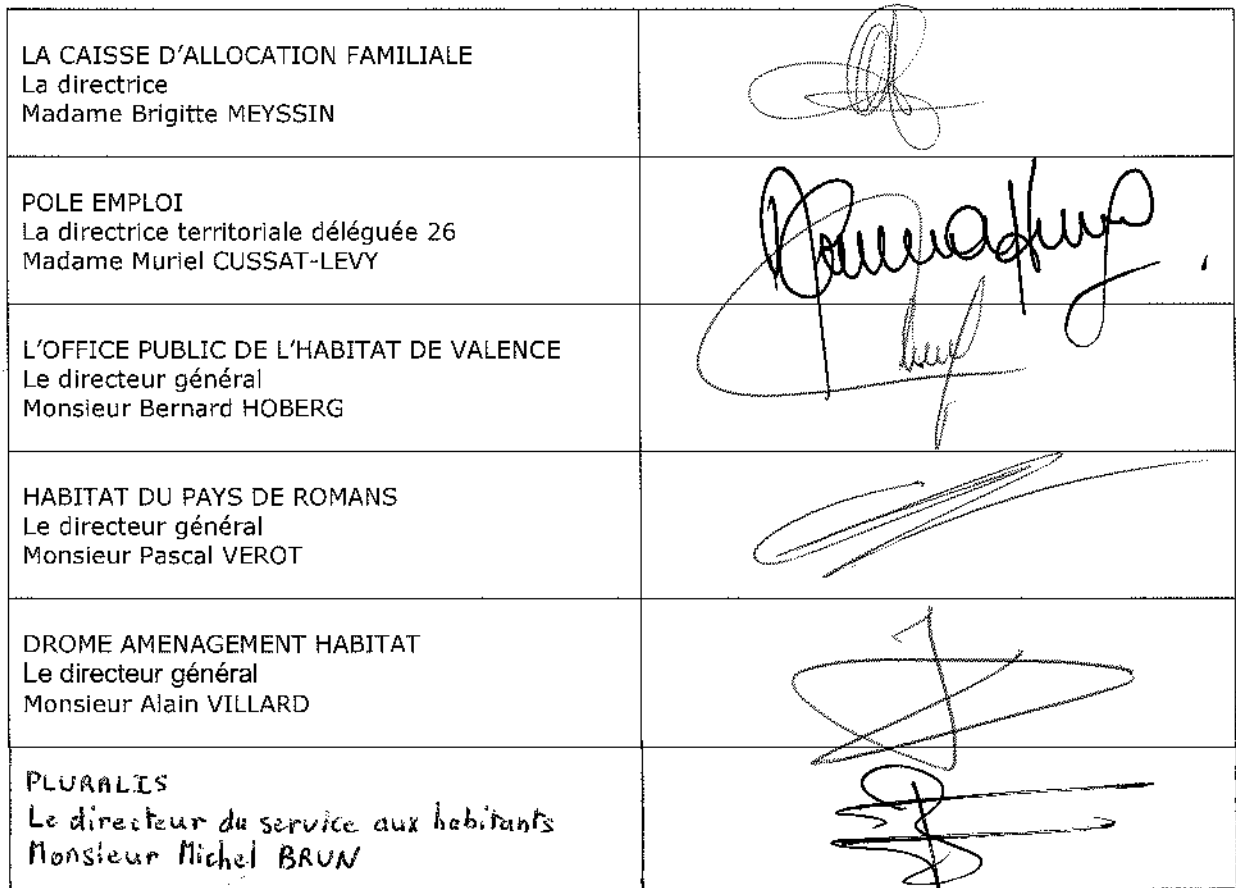 LA CAISSE D'ALLOCATION FAMILIALE
La directrice
Madame Brigitte MEYSSIN
POLE EMPLOI
La directrice territoriale déléguée 26
Madame Muriel CUSSAT-LEVY
L'OFFICE PUBLIC DE L'HABITAT DE VALENCE
Le directeur général
Monsieur Bernard HOBERG
HABITAT DU PAYS DE ROMANS
Le directeur général
Monsieur Pascal VEROT
DROME AMENAGEMENT HABITAT
Le directeur général
Monsieur Alain VILLARD
PLURALIS
Le directeur du service aux habitants
Monsieur Michel BRUN